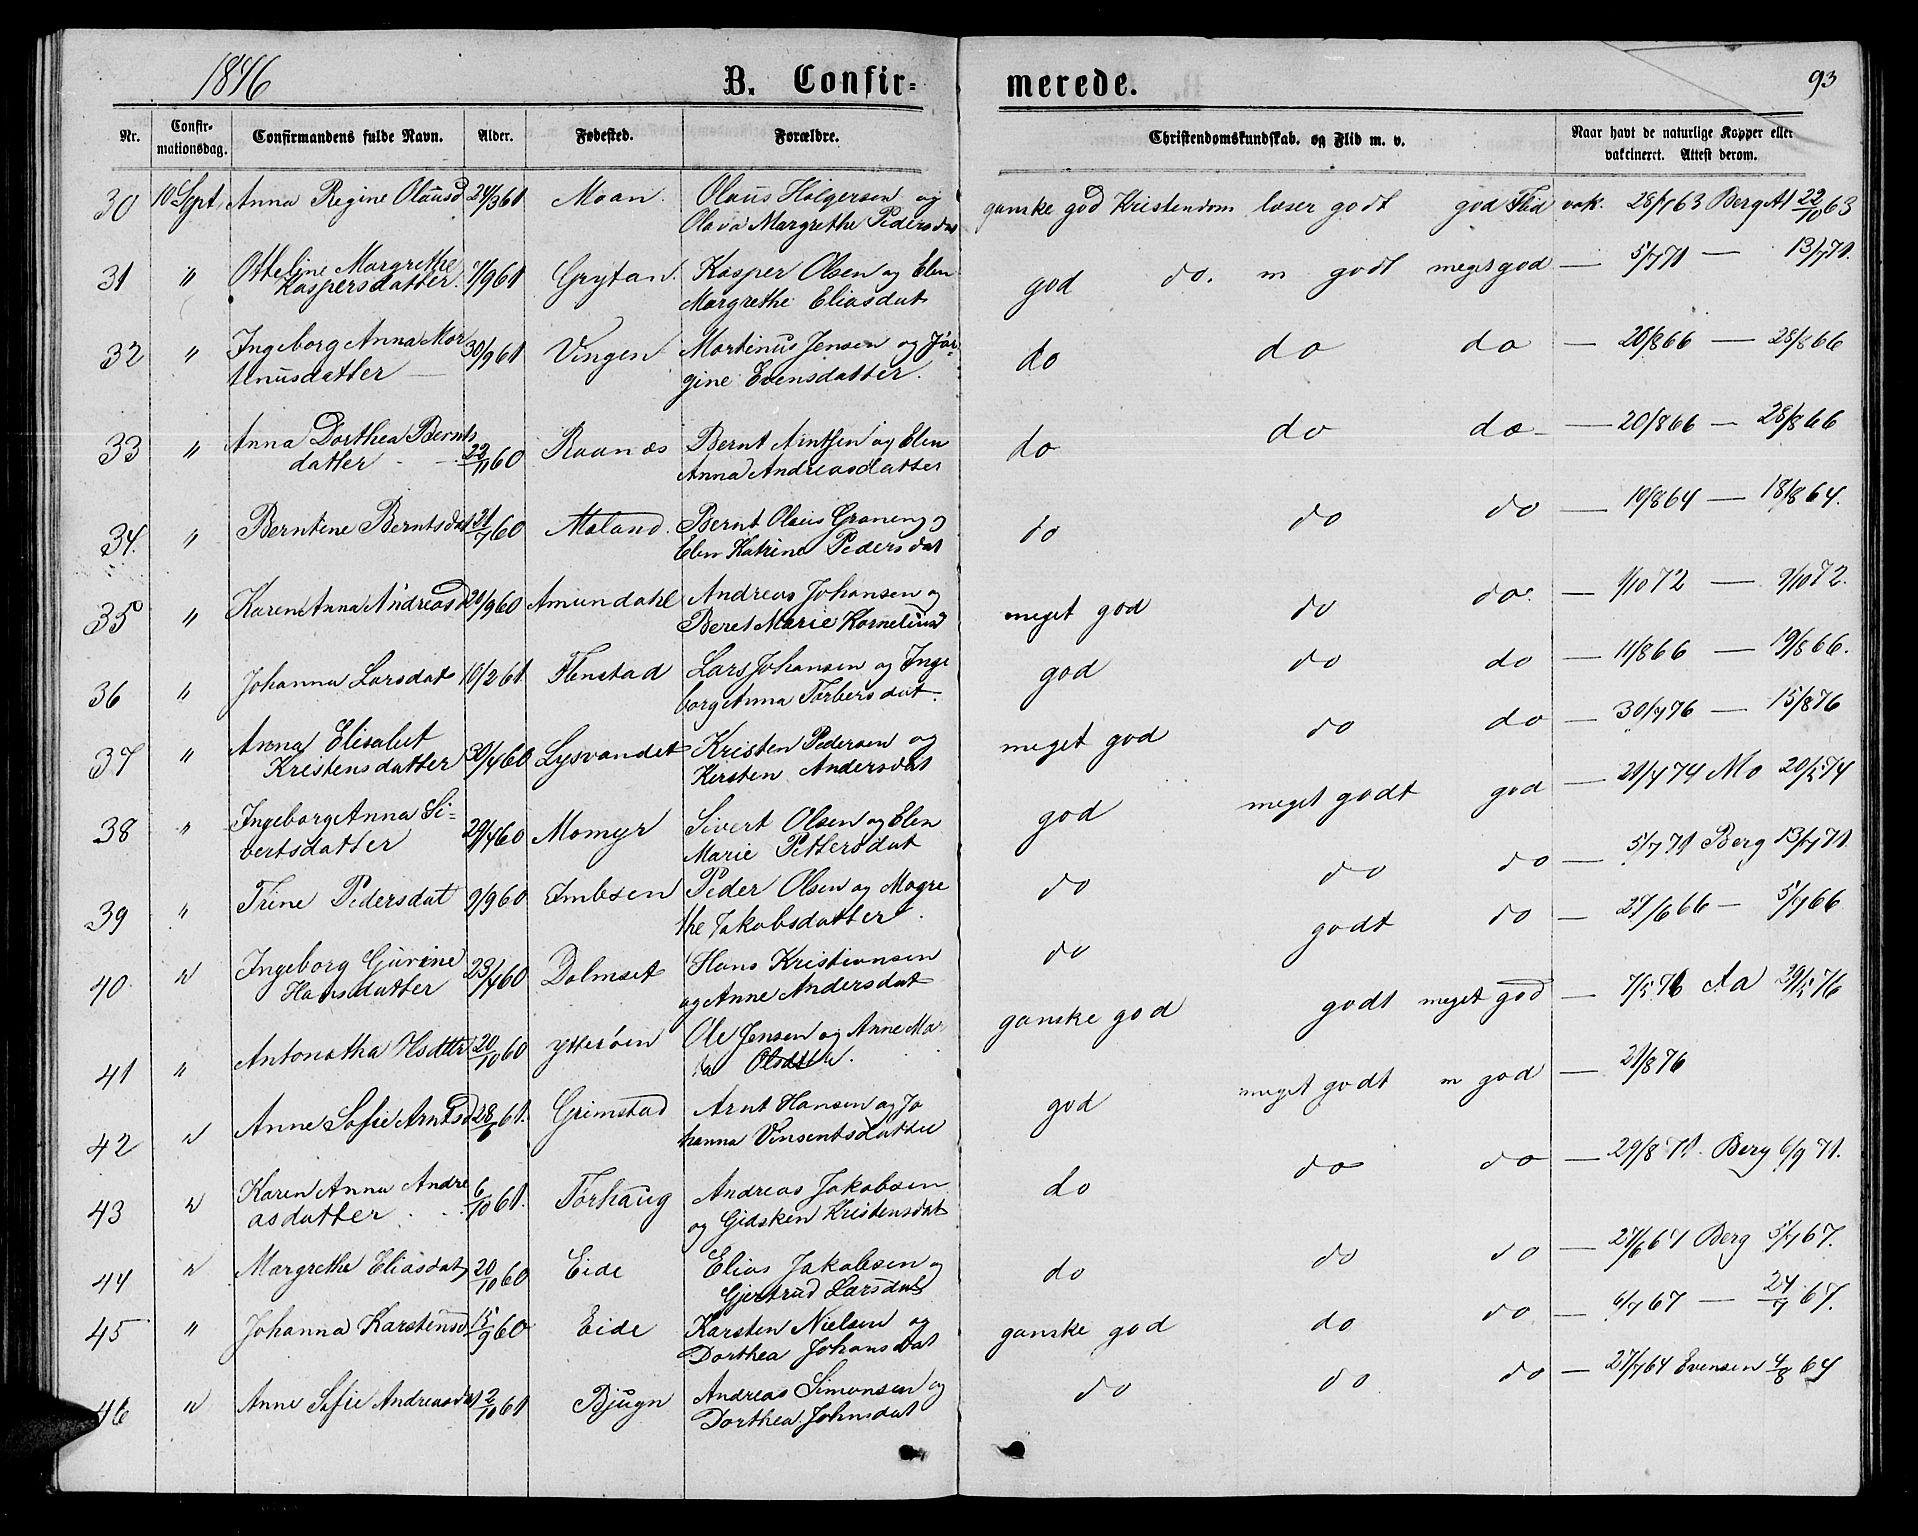 1876
B. Confir-
merede.
93
Nr.
Confir-
mationsdag.
Confirmandens fulde Navn.
Alder.
Fødested.
Forældre.
Christendomskundskab. og Flid m. v.
Naar havt de naturlige Kopper eller
vakcineret. Attest derom.
30 10 Sept. Anna Regine Olausd 24/3 61 Moan. Olaus Holgersen og
Olava Margrethe Pedersdat
ganske god Kristendom læser godt god Flid vak. 28/7 63 Berg At 22/10 63
31 " Otteline Margrethe
Kaspersdatter. 9 61 Grytan. Kasper Olsen og Elen
Margrethe Eliasdat
god do. m godt meget god — 5/7 71 — 13/7 71.
32 " Ingeborg Anna Mar
tinusdatter — 30/9 61 Vingen Martinus Jensen og Jør-
gine Evensdatter.
do do do — 20/8 66 — 28/8 66
33 " Anna Dorthea Bernts
datter 22/11 60 Raanæs Bernt Arntsen og Elen
Anna Andreasdatter
do do do — 20/8 66 — 28/8 66
34. " Berntine Berntsdat 21/7 60 Moland. Bernt Olaus Graneng
Elen Katrine Pedersdat
do do do — 10/8 64 — 18/8 64.
35 " Karen Anna Andreasd 20/9 60 Amundahl Andreas Johansen og
Beret Marie Korneliusd
meget god do do. — 1/10 72 — 9/10 72.
36 " Johanna Larsdat 10/2 61. Flenstad Lars Johansen og Inge
borg Anna Torbersdat.
god do do — 11/8 66 — 19/8 66.
37 " Anna Elisabet
Kristensdatter 30/4 60 Lysvandet Kristen Pedersen og
Kersten Andersdat
meget god do do — 30/7 76 — 15/8 76
38 " Ingeborg Anna Si-
vertsdatter 29/4 60 Momyr Sivert Olsen og Elen
Marie Pettersdat
god meget godt god — 21/4 74 Mo 20/5 74
39 " Trine Pedersdat 9/9 60 Imbsen Peder Olsen og Magre
the Jakobsdatter.
do do do — 5/7 71 Berg 13/7 71.
40. " Ingeborg Guvine
Hansdatter 23/4 60 Dolmset Hans Kristiansen
og Anne Andersdat
do godt do — 27/6 66 — 5/7 66
41 " Antonetha Olsdttr 20/10 60 Ytterøen Ole Jensen og Anne Ma
ta Olsdtter.
ganske god godt meget god — 7/5 76 Aa 29/5 76
42 " Anne Sofie Arntsd 28/6 61. Grimstad Arnt Hansen og Jo
hanna Vinsentsdatter
god meget godt m god — 21/8 76
43 " Karen Anna Andre
asdatter 6/10 61. Torhaug Andreas Jakobsen
og Gidsken Kristensdat
do do do — 29/8 71. Berg 6/9 71.
44 " Margrethe Eliasdat 20/10 60 Eide Elias Jakobsen og
Gjertrud Larsdat
do do do — 27/6 67 Berg 5/7 67.
45 " Johanna Karstensd 15/9 60 Eide Karsten Nielsen og
Dorthea Johansdat
ganske god do do — 6/7 67 — 24/7 67.
46 " Anne Sofie Andreasdat 2/10 61 Bjugn Andreas Simonsen og
Dorthea Johnsdat
do do do — 27/7 64 Evensen 4/8 64